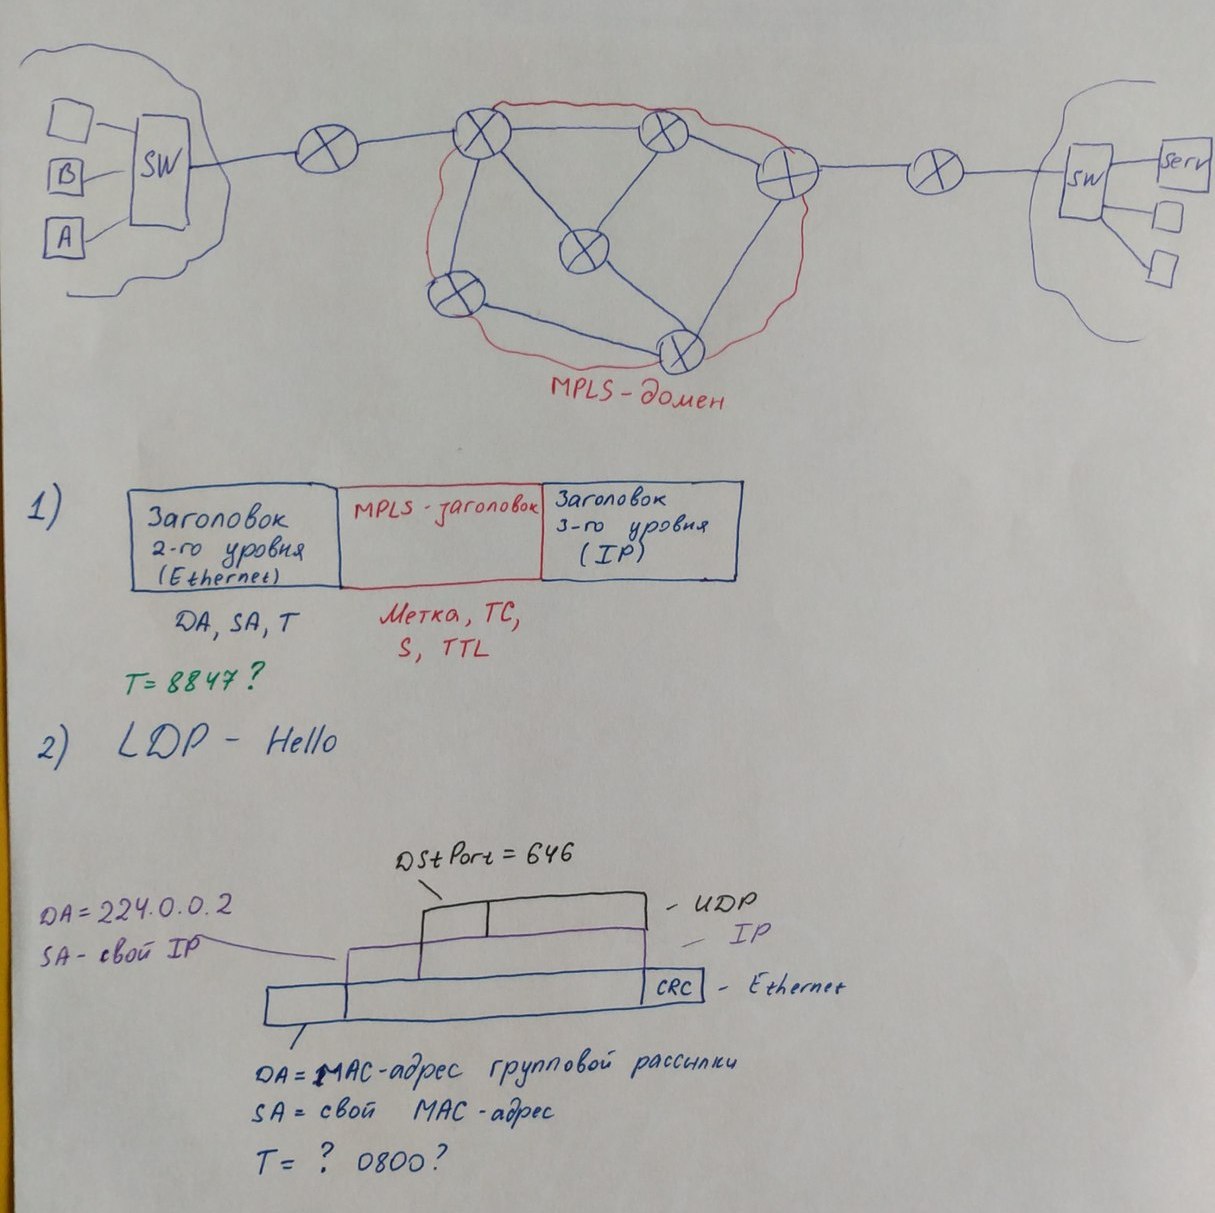 B
A
SW
SW
Serv
MPLS-домен
1)
Заголовок
2-го уровня
(Ethernet)
MPLS-заголовок
Заголовок
3-го уровня
(IP)
DA, SA, T
Метка, TC,
S, TTL
T=8847?
2) LDP - Hello
DStPort = 646
DA=224.0.0.2
SA- свой IP
- UDP
- IP
CRC
- Ethernet
DA= MAC-адрес групповой рассылки
SA= свой MAC-адрес
T= ? 0800?